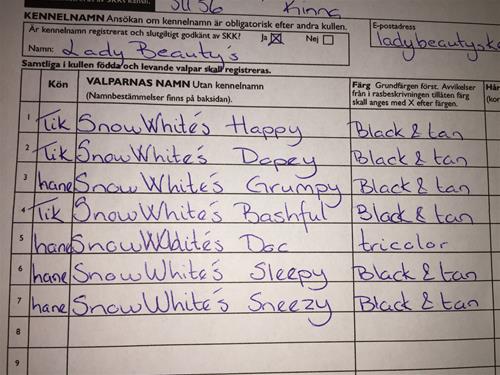 SU 56 Kinna
KENNELNAMN Ansökan om kennelnamn är obligatorisk efter andra kullen.
Är kennelnamn registrerat och slutgiltigt godkänt av SKK? Ja ☒ Nej ☐
E-postadress
Namn: Lady Beauty's
ladybeautysk
Samtliga i kullen födda och levande valpar skall registreras.
Kön VALPARNAS NAMN Utan kennelnamn
(Namnbestämmelser finns på baksidan).
Färg Grundfärgen först. Avvikelser
från i rasbeskrivningen tillåten färg
skall anges med X efter färgen.
Hår
(kor
1 Tik SnowWhite's Happy Black & tan
2 Tik SnowWhite's Dopey Black & tan
3 hane SnowWhite's Grumpy Black & tan
4 Tik SnowWhite's Bashful Black & tan
5 hane SnowWhite's Doc tricolor
6 hane SnowWhite's Sleepy Black & tan
7 hane SnowWhite's Sneezy Black & tan
8
9